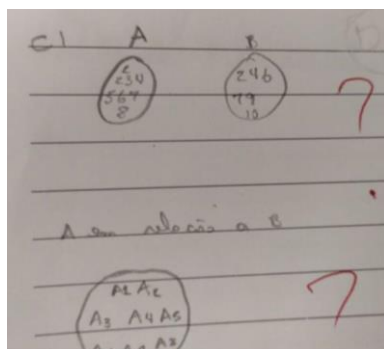 c) A B
2
2 3 4
5 6 7
8
2 4 6
7 9
10
?
A em relação a B
A1 A2
A3 A4 A5
?